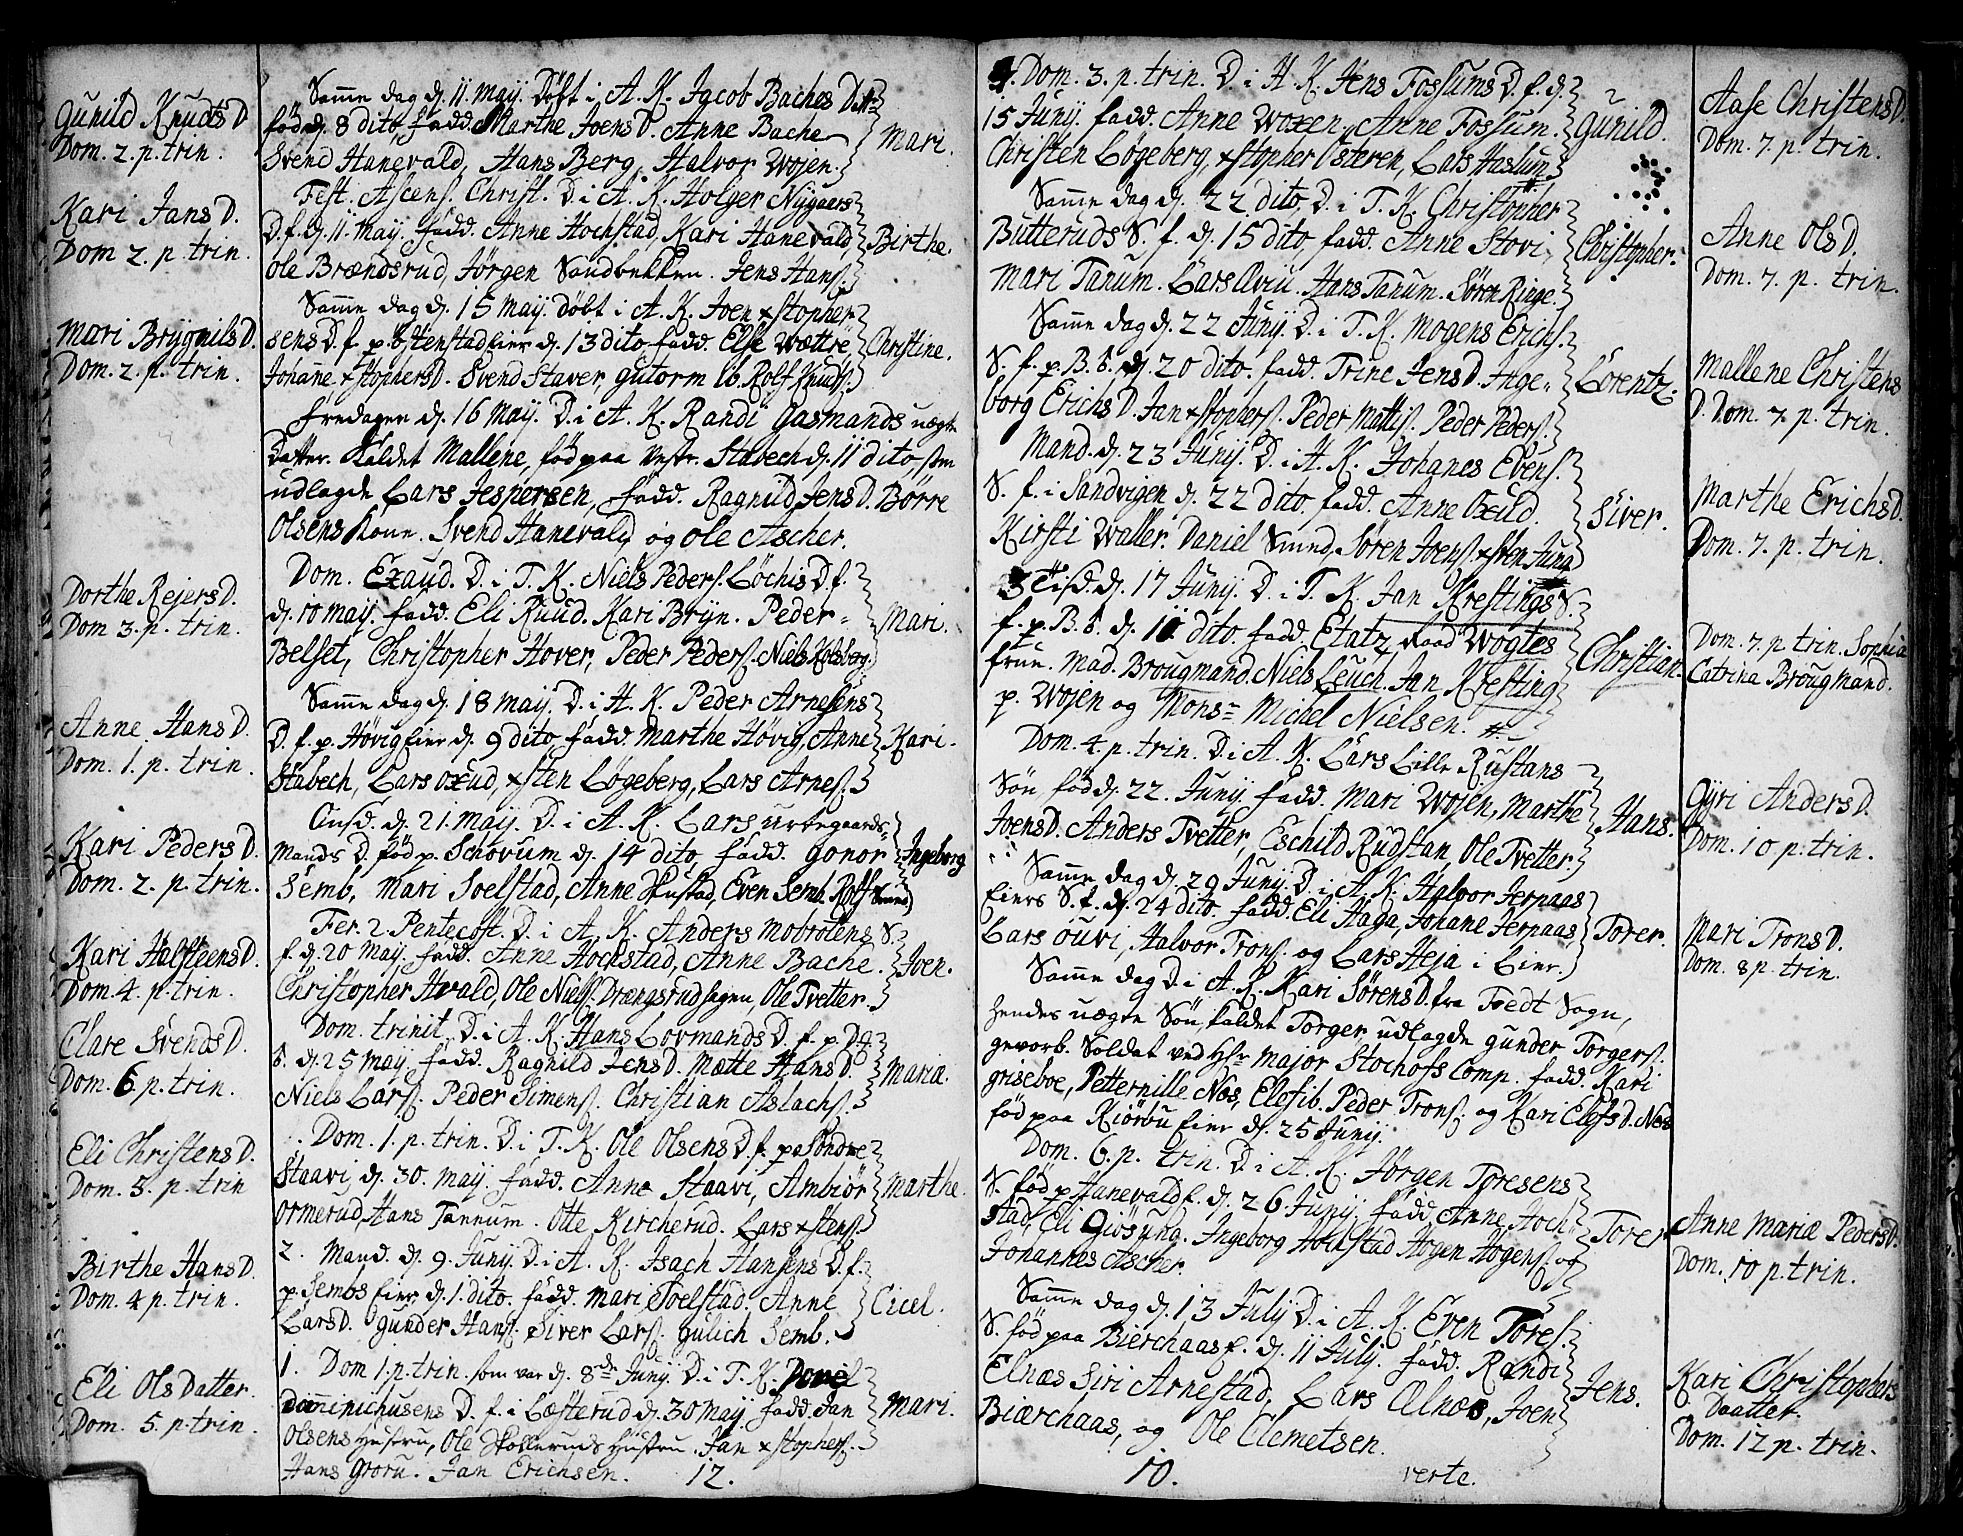 Gunild KnudsD
Dom. 2. p. trin.
Kari JansD.
Dom 2. p. trin.
Mari BrÿgnilsD.
Dom. 2. p. trin.
Dorthe RejersD.
Dom 3. p. trin.
Anne HansD.
Dom. 1. p. trin.
Kari PedersD.
Dom. 2. p. trin.
Kari HalfsteensD.
Dom. 4. p. trin.
Clare SvendsD.
Dom. 6 p. trin.
Eli ChristensD.
Dom. 5. p. trin
Birthe HansD.
Dom. 4 p. trin.
Eli OlsDatter.
Dom. 5. p. trin.
Samme dag d. 11 maÿ. Døbt i A. K. Jacob Baches Dat:
fød d. 8 dito, fadd. Marthe JoensD. Anne Bache
Svend Hanevald, Hans Berg, Halvor Wojen.
Mari.
Fest. Ascens. Christ. D. i A. K. Holger Nÿgaers
D. f. d. 11. maÿ. fadd. Anne Hochstad, Kari Hanevald,
Ole Brændsrud, Jørgen Sandbekken. Jens Hans.
Birthe.
Samme dag d. 15 maÿ. døbt i A. K. Joen xstopher
sens D. f. p. Østenstad Eier d. 13 dito fadd. Else Wættre
Johanne xstophersD. Svend Staver, gutorm ib. Rolf Knuds.
Christine.
Fredagen d. 16 maÿ. D. i A. K. Randi Gasmands uægte
Datter. Kaldet Mallene, fød paa Vestr. Stabech d. 11 dito, som
udlagde Lars Jespersen, fadd. Ragnild JensD. Børre
Olsens Kone. Svend Hanevald og Ole Ascher.
Dom. Exaud. D. i T. K. Niels Peders. Løchis D. f.
d. 10 maÿ. fadd. Eli Ruud. Kari Brÿn. Peder
Belset, Christopher Hover, Peder Peders. Niels Kolsberg.
Mari.
Samme dag d. 18 maÿ. D. i H. K. Peder Arnesens
D. f. p. Høvig Eier d. 9 dito fadd. Marthe Høvig, Anne
Stabech, Lars Oxud, xsten Løgeberg, Lars Arnes.
Kari.
Onsd. d. 21. maÿ. D. i A. K. Lars urtegaards-
mands D. fød p. Schovum d. 14 dito, fadd. gonor
Semb, mari Soelstad, Anne Skustad, Even Semb. Rolf Smed
Ingeborg
Fer. 2. Pentecost. D. i A. K. Anders Mobrotens S.
f. d. 20 maÿ. fadd. Anne Hochstad, Anne Bache.
Christopher Hvald, Ole Niels. Drængsrudhagen, Ole Tvetter.
Joen.
Dom. trinit. D. i A. K. Hans Lovmands D. f. p D. 4.
S. d. 25 maÿ fadd. Ragnild JensD. Mætte HansD.
Niels Lars. Peder Simens. Christian Aslachs.
Mariæ.
Dom. 1. p. trin. D. i T. K. Ole Olsens D. f. paa Søndre
Staavi, d. 30. maÿ. fadd. Anne Staavi, Ambiør
Ormerud, Hans Tannum. Otte Kircherud. Lars xstens.
Marthe.
2. Mand. d. 9 Junÿ. D. i A. K. Isach Hansens D. f.
p. Sembs Eier d. 1. dito. fadd. mari Soelstad. Anne
LarsD. gunder Hans. Siver Lars. gulich Semb.
Cicel.
1. Dom 1. p. trin. som var d. 8de Junÿ. D. i T. K. Povel
Dominichusens D. f. i Læsterud d. 30 maÿ fadd. Jan
Olsens Hustru, Ole Skollerruds Hustru. Jan xstophers.
Hans grorü. Jan Erichsen. 12.
Mari.
4. Dom. 3. p. trin. D. i H. K. Jens Fossums D. f. d.
15 Junÿ. fadd. Anne Woxen, Anne Fossum.
Christen Løgeberg, xstopher Østeren, Lars Haslum.
Gunild.
Samme dag d. 22 dito, D. i T. K. Christopher
Butteruds S. f. d. 15 dito, fadd. Anne Stovi,
Mari Tanum. Lars Qviu. Hans Tanum. Søren Ringe.
Christopher.
Samme dag d. 22 Junÿ. D. i T. K. Mogens Erichs.
S. f. p. B. S. d. 20 dito. fadd. Trine JensD. Inge-
borg ErichsD. Jan xstophers. Peder Mattis. Peder Peders.
Lorentz.
Mand. d. 23 Junÿ. D. i H. K. Johanes Evens.
S. f. i Sandvigen d. 22 dito, fadd. Anne Oxud.
Kirsti Waller. Daniel Smed, Søren Joens. xsten Jung
Siver.
3 Tisd. d. 17 Junÿ. D. i T. K. Jan Krestings S.
f. p. B. S. d. 10 dito. fadd. Etatz Raad Wogtes
frue. Mad. Brougmand. Niels Leuch. Jan Kresting
p. Wojen og Mons. Michel Nielsen.
Christian.
Dom. 4. p. trin. D. i A. K. Lars Lille Rustans
Søn, fød d. 22. Junÿ. fadd. Mari Wojen, Marthe
JoensD. Anders Tvetter, Eschild Rudstan, Ole Tvetter.
Hans.
Samme dag d. 29 Junÿ. D. i A. K. Halvor Jernaas
Eiers S. f. d. 24 dito. fadd. Eli Haga, Johane Jernaas,
Lars Ouvi, Halvor Trons. og Lars Heja i Eier.
Torer.
Samme dag D. i A. K. Kari SørensD. fra Tvedt Sogn,
hendes uægte Søn, kaldet Torger, udlagde gunder Torgers.
gevorb. Soldat ved Hr Major Stochofs Comp. fadd. Kari
griseboe, Petternille Nøs, Elef ib. Peder Trons. og Kari ElefsD. Nøs
fød paa Kiørbu Eier d. 25 Junÿ.
Dom. 6. p. trin. D. i A. K. Jørgen Toresens
S. fød p. Hanevald E. d. 26 Junÿ. fadd. Anne Hoch-
stad, Eli Giøsung. Ingeborg Hochstad Hogen Hogens. og
Johannes Ascher.
Torer
Samme dag d. 13 Julÿ D. i A. K. Even Tores.
S. fød paa Bierchaas E. d. 11 Julÿ. fadd. Randi
Elnæs Siri Arnestad, Lars Ælnæs, Joen
Biærchaas, og Ole Clemetsen.
Jens.
10. verte.
Aase ChristensD.
Dom. 7. p. trin.
Anne OlsD.
Dom. 7. p. trin.
Mallene Christens
D. Dom. 7. p. trin.
Marthe ErichsD.
Dom. 7. p. trin.
Dom. 7. p trin. Sophia
Catrina Brougmand.
Gÿri AndersD.
Dom. 10. p. trin.
Mari TronsD.
Dom. 8 p. trin.
Anne Mariæ PedersD
Dom. 10 p. trin.
Kari Christophers
Daatter.
Dom. 12 p. trin.